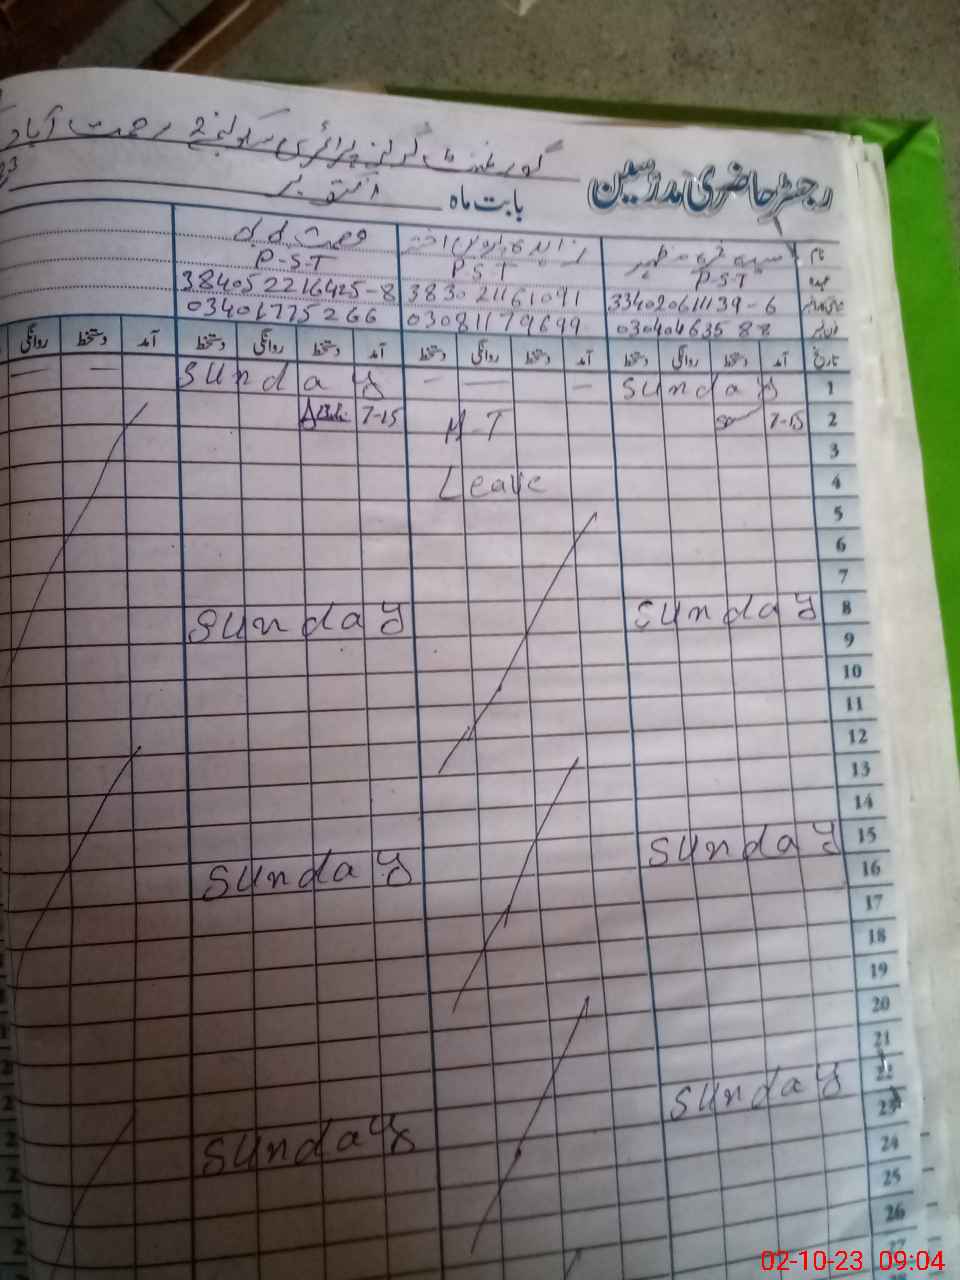 گورنمنٹ گرلز پرائمری سکول نمبر 2 رحمت آباد
رجسٹر حاضری مدرسین
بابت ماہ اکتوبر
نام
عہدہ P-S-T P.S.T P-S-T
33402061139-6 383021161091 384052216425-8
03040463588 03081179699 03401775266
تاریخ آمد دستخط روانگی دستخط آمد دستخط روانگی دستخط آمد دستخط روانگی دستخط آمد دستخط روانگی
1 Sunday — — — Sunday — —
2 7-15 M-T 7-15
3
4 Leave
5
6
7
8 Sunday Sunday
9
10
11
12
13
14
15 Sunday
16 Sunday
17
18
19
20
21
22 Sunday Sunday
23
24
25
26
27
02-10-23 09:04